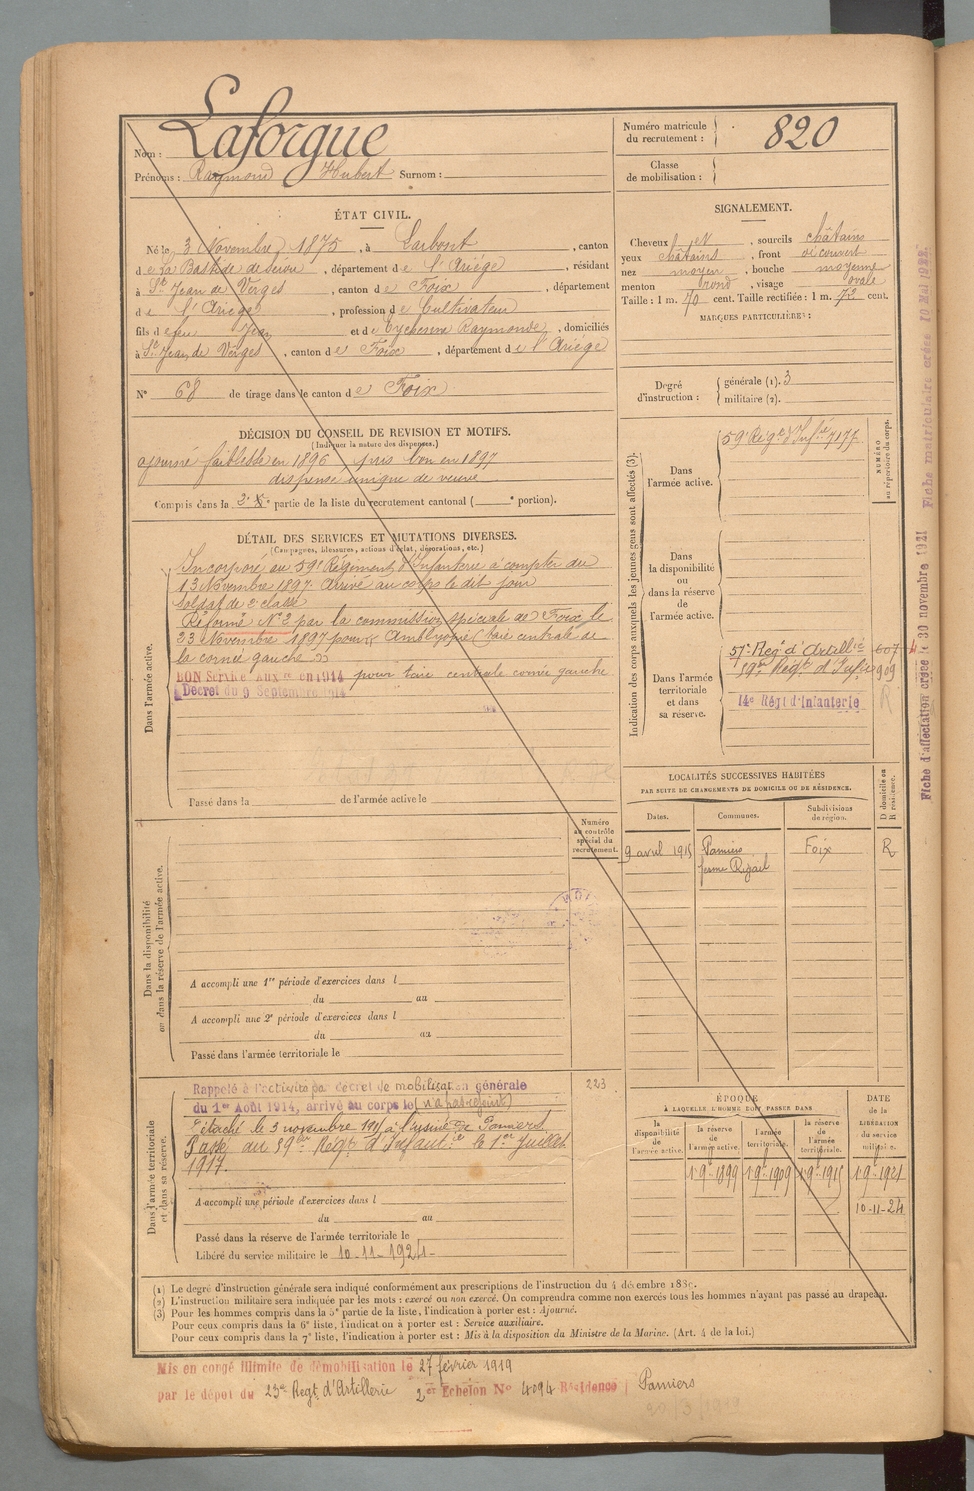 Nom : Laforgue
Prénoms : Raymond Hubert Surnom :
Numéro matricule du recrutement : 820
Classe de mobilisation :
ÉTAT CIVIL.
Né le 3 Novembre 1875, à Larbont, canton
de La Bastide de Sérou, département de l'Ariége, résidant
à St Jean de Verges, canton de Foix, département
de l'Ariége, profession de Cultivateur
fils de feu Jean et de Eychenne Raymonde, domiciliés
à St Jean de Verges, canton de Foix, département de l'Ariége
N° 68 de tirage dans le canton de Foix
SIGNALEMENT.
Cheveux et, sourcils châtains
yeux châtains, front découvert
nez moyen, bouche moyenne
menton rond, visage ovale
Taille : 1 m. 70 cent. Taille rectifiée : 1 m. 72 cent.
MARQUES PARTICULIÈRES :
Degré d'instruction : générale (1). 3
militaire (2).
DÉCISION DU CONSEIL DE REVISION ET MOTIFS.
(Indiquer la nature des dispenses.)
ajourné faiblesse en 1896, pris bon en 1897
dispensé unique de veuve
Compris dans la 2e partie de la liste du recrutement cantonal ( e portion).
DÉTAIL DES SERVICES ET MUTATIONS DIVERSES.
(Campagnes, blessures, actions d'éclat, décorations, etc.)
Dans l'armée active.
Incorporé au 59e Régiment d'Infanterie à compter du
13 Novembre 1897. Arrivé au corps le dit jour
Soldat de 2e classe
Réformé N° 2 par la commission spéciale de Foix le
23 Novembre 1897 pour Amblyopie (taie centrale de
la cornée gauche
BON Service Auxre en 1914 pour taie centrale cornée gauche
Décret du 9 Septembre 1914
Passé dans la de l'armée active le
Indication des corps auxquels les jeunes gens sont affectés (3).
NUMÉRO au répertoire du corps.
Dans l'armée active.
59e Régt d'Infie 7177
Dans la disponibilité ou dans la réserve de l'armée active.
Dans l'armée territoriale et dans sa réserve.
57e Rég. d'Artillie 607
59e Régt d'Infie 909
14e Régt d'Infanterie R
LOCALITÉS SUCCESSIVES HABITÉES
PAR SUITE DE CHANGEMENTS DE DOMICILE OU DE RÉSIDENCE.
Dates. Communes. Subdivisions de région. D domicile ou R résidence.
9 avril 1915 Pamiers Foix R
ferme
Numéro au contrôle spécial du recrutement.
Dans la disponibilité ou dans la réserve de l'armée active.
A accompli une 1re période d'exercices dans l
du au
A accompli une 2e période d'exercices dans l
du au
Passé dans l'armée territoriale le
Dans l'armée territoriale et dans sa réserve.
Rappelé à l'activité par décret de mobilisation générale 223
du 1er Août 1914, arrivé au corps le (n'a pas rejoint)
Détaché le 3 novembre 1915 à l'usine de Pamiers
Passé au 59e Régt d'Infantie le 1er Juillet
1917.
A accompli une période d'exercices dans l
du au
Passé dans la réserve de l'armée territoriale le
Libéré du service militaire le 10-11-1924
ÉPOQUE
À LAQUELLE L'HOMME DOIT PASSER DANS
DATE de la LIBÉRATION du service militaire.
la disponibilité de l'armée active.
la réserve de l'armée active.
l'armée territoriale.
la réserve de l'armée territoriale.
1-9-1899 1-9-1909 1-9-1915 1-9-1921
10-11-24
(1) Le degré d'instruction générale sera indiqué conformément aux prescriptions de l'instruction du 4 décembre 1889.
(2) L'instruction militaire sera indiquée par les mots : exercé ou non exercé. On comprendra comme non exercés tous les hommes n'ayant pas passé au drapeau.
(3) Pour les hommes compris dans la 5e partie de la liste, l'indication à porter est : Ajourné.
Pour ceux compris dans la 6e liste, l'indication à porter est : Service auxiliaire.
Pour ceux compris dans la 7e liste, l'indication à porter est : Mis à la disposition du Ministre de la Marine. (Art. 4 de la loi.)
Mis en congé illimité de démobilisation le 27 février 1919
par le dépôt du 23e Regt d'Artillerie 2e Echelon N° 4094 Résidence Pamiers
Fiche d'affectation créée le 30 novembre 1921
Fiche matriculaire créée 10 Mai 1922.